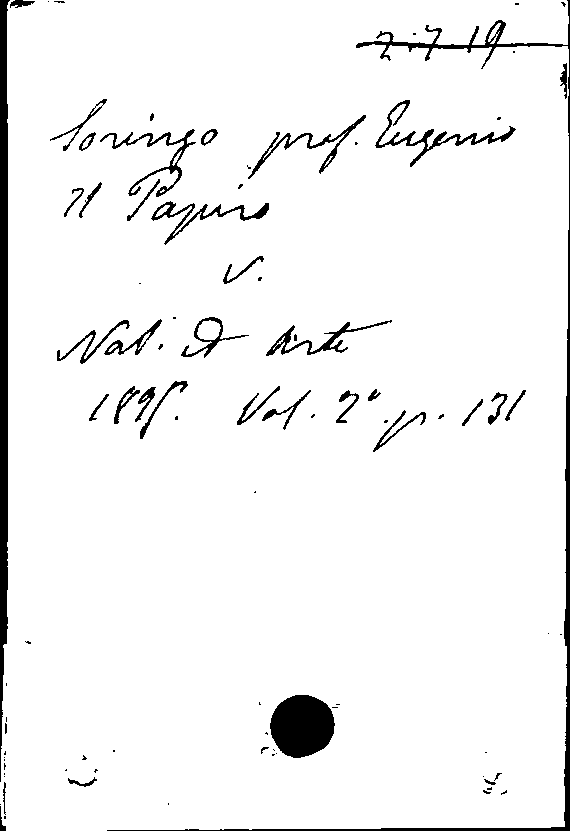 2.7.19
Soringo prof. Eugenio
Il Papiro
v.
Nat. ed Arte
1895. Vol. 2° p. 131